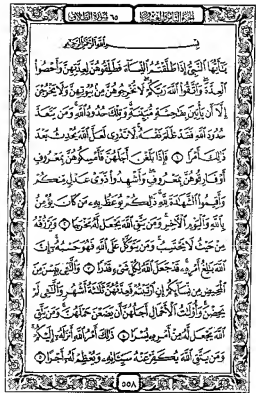 الجزء الثامن والعشرون ٦٥ سورة الطلاق
بسم الله الرحمن الرحيم
يَٰٓأَيُّهَا ٱلنَّبِيُّ إِذَا طَلَّقْتُمُ ٱلنِّسَآءَ فَطَلِّقُوهُنَّ لِعِدَّتِهِنَّ وَأَحْصُوا۟
ٱلْعِدَّةَ وَٱتَّقُوا۟ ٱللَّهَ رَبَّكُمْ لَا تُخْرِجُوهُنَّ مِنۢ بُيُوتِهِنَّ وَلَا يَخْرُجْنَ
إِلَّآ أَن يَأْتِينَ بِفَٰحِشَةٍ مُّبَيِّنَةٍ وَتِلْكَ حُدُودُ ٱللَّهِ وَمَن يَتَعَدَّ
حُدُودَ ٱللَّهِ فَقَدْ ظَلَمَ نَفْسَهُۥ لَا تَدْرِى لَعَلَّ ٱللَّهَ يُحْدِثُ بَعْدَ
ذَٰلِكَ أَمْرًا ١ فَإِذَا بَلَغْنَ أَجَلَهُنَّ فَأَمْسِكُوهُنَّ بِمَعْرُوفٍ
أَوْ فَارِقُوهُنَّ بِمَعْرُوفٍ وَأَشْهِدُوا۟ ذَوَىْ عَدْلٍ مِّنكُمْ
وَأَقِيمُوا۟ ٱلشَّهَٰدَةَ لِلَّهِ ذَٰلِكُمْ يُوعَظُ بِهِۦ مَن كَانَ يُؤْمِنُ
بِٱللَّهِ وَٱلْيَوْمِ ٱلْءَاخِرِ وَمَن يَتَّقِ ٱللَّهَ يَجْعَل لَّهُۥ مَخْرَجًا ٢ وَيَرْزُقْهُ
مِنْ حَيْثُ لَا يَحْتَسِبُ وَمَن يَتَوَكَّلْ عَلَى ٱللَّهِ فَهُوَ حَسْبُهُۥٓ إِنَّ
ٱللَّهَ بَٰلِغُ أَمْرِهِۦ قَدْ جَعَلَ ٱللَّهُ لِكُلِّ شَىْءٍ قَدْرًا ٣ وَٱلَّٰٓـِٔى يَئِسْنَ مِنَ
ٱلْمَحِيضِ مِن نِّسَآئِكُمْ إِنِ ٱرْتَبْتُمْ فَعِدَّتُهُنَّ ثَلَٰثَةُ أَشْهُرٍ وَٱلَّٰٓـِٔى لَمْ
يَحِضْنَ وَأُو۟لَٰتُ ٱلْأَحْمَالِ أَجَلُهُنَّ أَن يَضَعْنَ حَمْلَهُنَّ وَمَن يَتَّقِ
ٱللَّهَ يَجْعَل لَّهُۥ مِنْ أَمْرِهِۦ يُسْرًا ٤ ذَٰلِكَ أَمْرُ ٱللَّهِ أَنزَلَهُۥٓ إِلَيْكُمْ
وَمَن يَتَّقِ ٱللَّهَ يُكَفِّرْ عَنْهُ سَيِّـَٔاتِهِۦ وَيُعْظِمْ لَهُۥٓ أَجْرًا ٥
٥٥٨